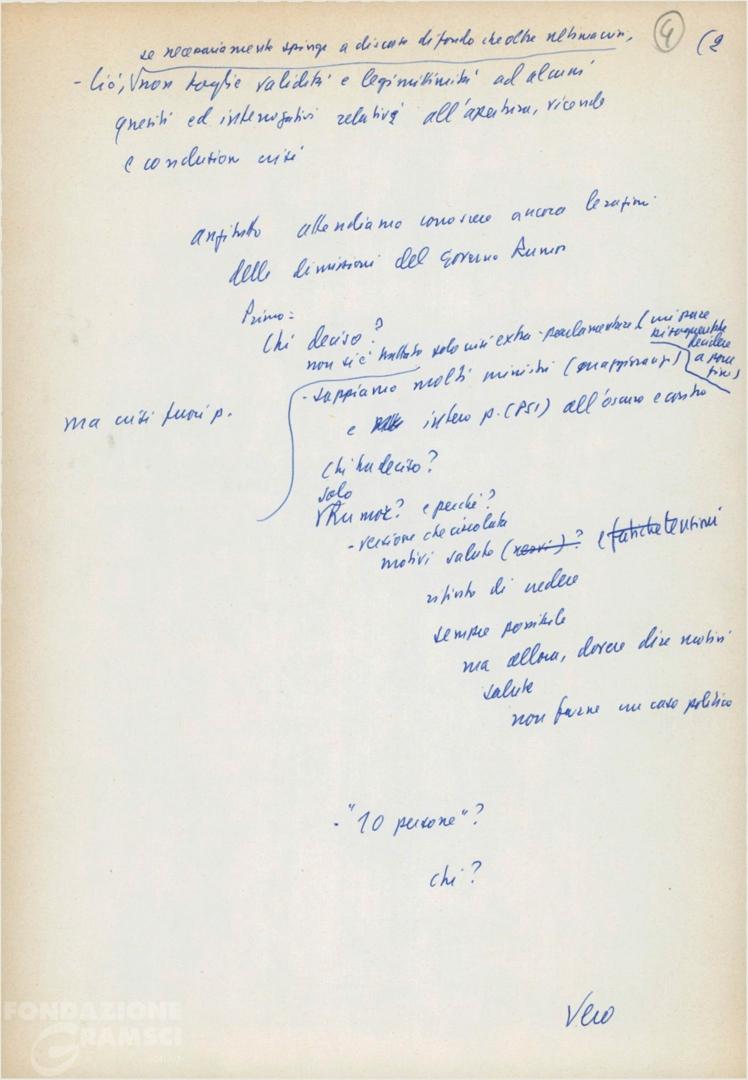 4
(2
se necessariamente spinge a discorso di fondo che oltre
- Ciò, non toglie validità e legimittimità ad alcuni
quesiti ed interrogativi relativi all'apertura, vicende
e conclusion crisi
anzitutto attendiamo conoscere ancora le ragioni
delle dimissioni del Governo Rumor
Primo:
Chi deciso?
non si è trattato solo crisi extra-parlamentare (mi pare
decidere
a porte
- sappiamo molti ministri (maggioranza)
ma crisi fuori p.
e intero p. (PSI) all'oscuro e contro
Chi ha deciso?
solo
Rumor? e perché?
- versione che circolata
motivi salute (nervi)? e fatiche tensioni
rifiuto di credere
sempre possibile
ma allora, dovere dire motivi
salute
non farne un caso politico
- "10 persone"?
chi?
Vero
FONDAZIONE
GRAMSCI